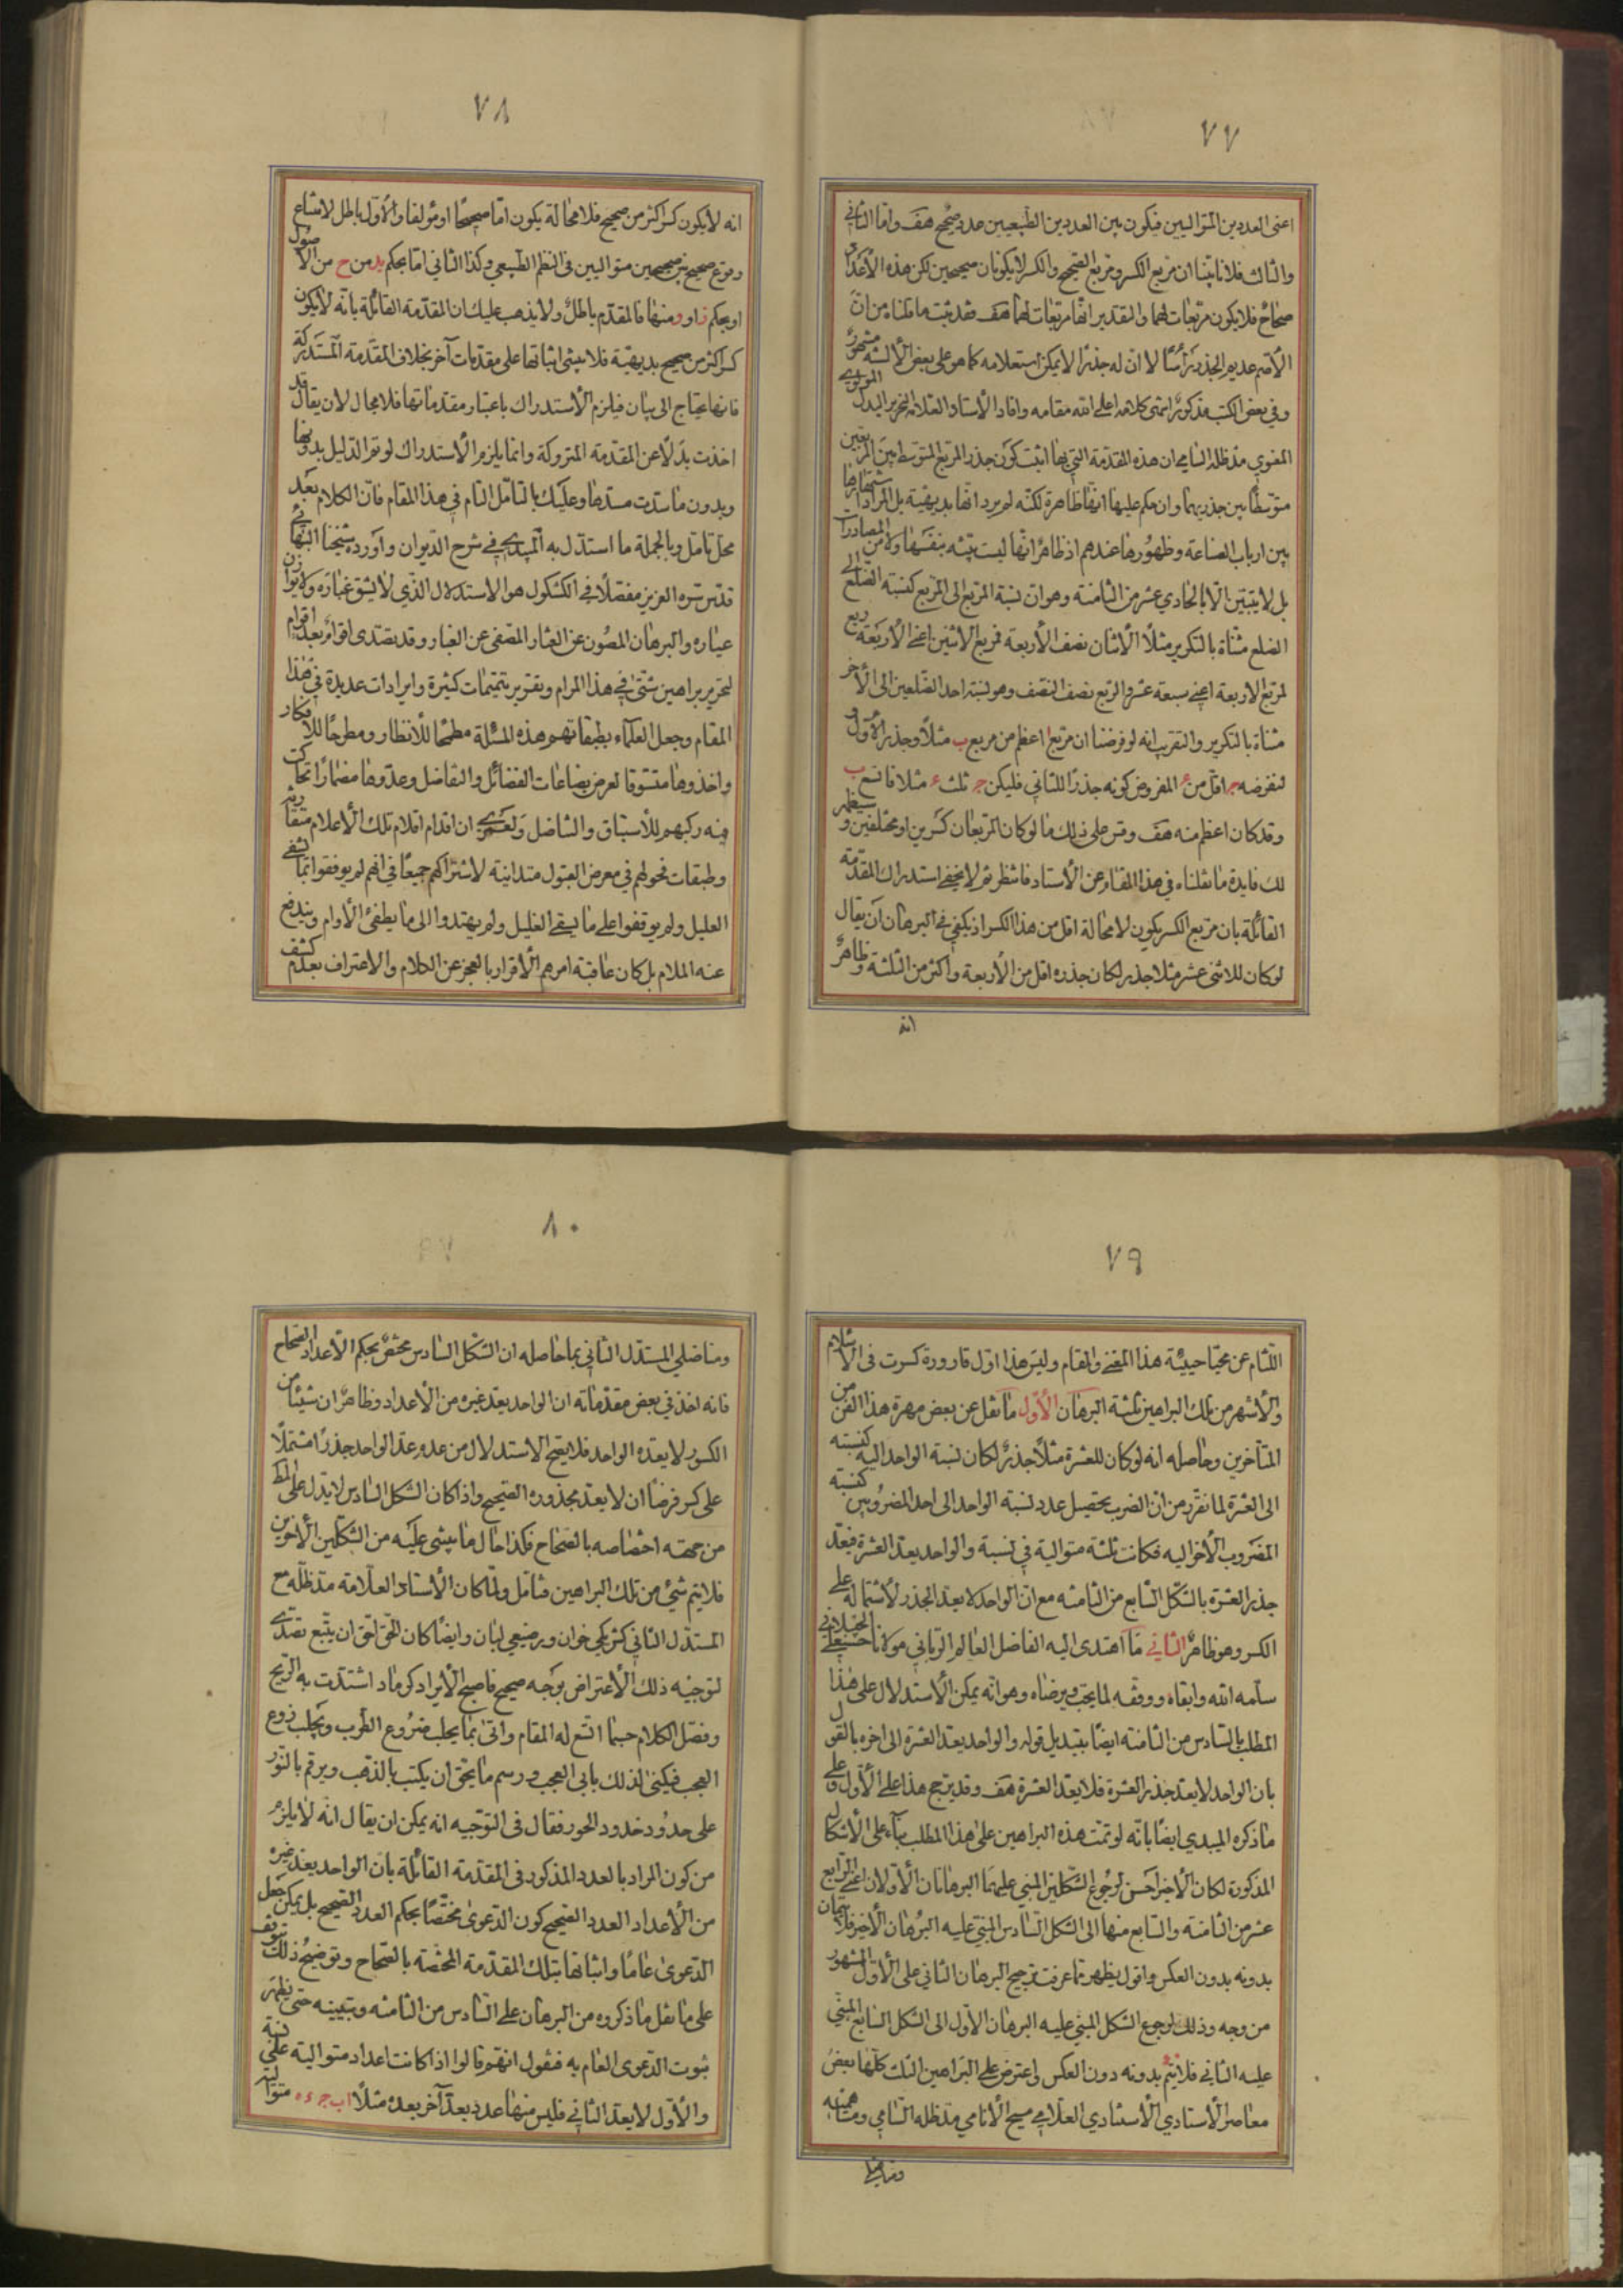 ٧٧
اعنى العددين المتواليين فيكون بين العددين الطبيعيين عدد صحيح هف واما الثانى
والثالث فلانا بيّنا ان مربع الكسر ومربع الصحيح والكسر لا يكونان صحيحين لكن هذه الأعداد
صحاح فلا يكون مربعات لهما والتقدير انها مربعات لهما هف فقد ثبت ما قلنا من انّ
الأصم عديم الجذر رأسًا لا انّ له جذرا لا يمكن استعلامه كما هو على بعض الألسنة مشهور
وفى بعض الكتب مذكور انتهى كلامه اعلى الله مقامه وافاد الأستاد العلامة النحرير البدل المولوى
المعنوي مد ظله السامي ان هذه المقدمة التي بها اثبت كون جذر المربع المتوسط بين المربعين
متوسطًا بين جذريهما وان حكم عليها انها ظاهرة لكنّه لم يرد انّها بديهيّة بل المراد اشتهارها
بين ارباب الصناعة وظهورها عندهم اذ ظاهر انّها ليست بيّنة بنفسها ولا من المصادرات
بل لا يتبين الّا بالحادي عشر من الثامنة وهو ان نسبة المربع الى المربع كنسبة الضلع الى
الضلع مثناة بالتكرير مثلًا الأثنان نصف الأربعة فمربع الاثنين اعنى الأربعة ربع
لمربع الاربعة اعنى ستة عشر والربع نصف النصف وهو نسبة احد الضلعين الى الأخر
مثناة بالتكرير والتقريب انه لو فرضنا ان مربع ا اعظم من مربع ب مثلًا وجذر الأول و
لنفرضه ج اقل من ء المفروض كونه جذرًا للثاني فليكن ج ثلث ء مثلا فا تسع ب
وقد كان اعظم منه هف وقس على ذلك ما لو كان المربعان كسرين او مختلفين وسيظهر
لك فايدة ما نقلناه في هذا المقام عن الأستاد فانتظر ثم لا يخفى استدراك المقدمة
القائلة بان مربع الكسر يكون لا محالة اقل من هذا الكسر اذ يكفي في البرهان ان يقال
لو كان للاثنى عشر مثلا جذر لكان جذره اقل من الأربعة واكثر من الثلثة وظاهر
انه
٧٨
انه لا يكون كسرا اكثر من صحيح فلا محالة يكون اما صحيحًا او مؤلفا والأول باطل لامتناع
وقوع صحيح بين صحيحين متواليين فى النظم الطبيعي وكذا الثاني اما بحكم يد من ح من الأصول
او بحكم ز او و منها فالمقدم باطل ولا يذهب عليك ان المقدمة القائلة بانه لا يكون
كسرا اكثر من صحيح بديهيّة فلا يبتنى اثباتها على مقدمات آخر بخلاف المقدمة المستدركة
فانها تحتاج الى بيان فيلزم الأستدراك باعتبار مقدماتها فلا مجال لان يقال قد
اخذت بدلًا عن المقدمة المتروكة وانما يلزم الأستدراك لو تم الدليل بدونها
وبدون ما سدّت مسدها وعليك بالتأمّل التام في هذا المقام فانّ الكلام بعد
محل تامل وبالجملة ما استدل به الميبدي في شرح الديوان واورده شيخنا البهائى
قدس سره العزيز مفصلًا في الكشكول هو الاستدلال الذي لا يشق غباره ولا يوازن
عياره والبرهان المصون عن العثار المصفى عن الغبار وقد تصدى اقوام بعد اقوام
لتحرير براهين شتى في هذا المرام وتقرير تتميمات كثيرة وايرادات عديدة في هذا
المقام وجعل العلماء بطبقاتهم هذه المسئلة مطمحًا للأنظار ومطرحًا للأفكار
واخذوها متسوقا لعرض بضاعات الفضائل والتفاضل وعدّوها مضمارًا تحاكّت
فيه ركبهم للأستباق والتناضل ولعمري ان اقدام اقلام تلك الأعلام متقاربة
وطبقات فحولهم في معرض القبول متدانية لاشتراكهم جميعًا في انهم لم يوفقوا بما يشفى
العليل ولم يوقفوا على ما يسقى الغليل ولم يهتدوا الى ما يطفئ الأوام ويندفع
عنه الملام بل كان عاقبة امرهم الأقرار بالعجز عن الكلام والاعتراف بعدم كشف
٧٩
اللثام عن محيّا حيثية هذا المغنى والمقام وليس هذا اول قارورة كسرت فى الأسلام
والأشهر من تلك البراهين ثلثة البرهان الأول ما نقل عن بعض مهرة هذا الفن من
المتأخرين وحاصله انه لو كان للعشرة مثلًا جذر لكان نسبة الواحد اليه كنسبته
الى العشرة لما تقرر من ان الضرب تحصيل عدد نسبة الواحد الى احد المضروبين كنسبة
المضروب الأخر اليه فكانت ثلثة متوالية في نسبة والواحد يعد العشرة فيعد
جذر العشرة بالشكل السابع من الثامنة مع انّ الواحد لا يعد الجذر لاشتماله على
الكسر وهو ظاهر الثاني ما اهتدى اليه الفاضل العالم الرباني مولانا حسنعلي الجيلاني
سلّمه الله وابقاه ووفقه لما يحب ويرضاه وهو انّه يمكن الأستدلال على هذا
المطلب بالسادس من الثامنة ايضًا بتبديل قوله والواحد يعد العشرة الى اخره بالقول
بان الواحد لا يعد جذر العشرة فلا يعد العشرة هف وقد يرجح هذا على الأول على
ما ذكره الميبدي ايضًا بانّه لو تمّت هذه البراهين على هذا المطلب بناء على الأشكال
المذكورة لكان الأخير احسن لرجوع الشكلين المبني عليهما البرهانان الأولان اعني الرابع
عشر من الثامنة والسابع منها الى الشكل السادس المبني عليه البرهان الأخير فلا يتمان
بدونه بدون العكس واقول يظهر مما عرفت ترجيح البرهان الثاني على الأول المشهور
من وجه وذلك لرجوع الشكل المبني عليه البرهان الأول الى الشكل السابع المبني
عليه الثاني فلا يتم بدونه دون العكس واعترض على البراهين الثلث كلها بعض
معاصر الأستادي الأسنادي العلامي مسيح الأنامي مد ظله السامي ومساهميه
ومناضلي
٨٠
ومناضلي المستدل الثاني بما حاصله ان الشكل السادس مختص بحكم الأعداد الصحاح
فانه اخذ في بعض مقدماته ان الواحد يعد غيره من الأعداد وظاهر ان شيئًا من
الكسور لا يعده الواحد فلا يصح الاستدلال من عدم عد الواحد جذرًا مشتملًا
على كسر فرضًا ان لا يعد مجذوره الصحيح واذا كان الشكل السادس لا يدل على المط
من جهة اختصاصه بالصحاح فكذا حال ما يبتني عليه من الشكلين الأخرين
فلا يتم شيء من تلك البراهين فتامل ولما كان الأستاد العلامة مد ظله مع
المستدل الثاني كشريكي خوان ورضيعي لبان وايضًا كان الحق احق ان يتبع تصدى
لتوجيه ذلك الأعتراض بوجه صحيح فاصبح الأيراد كرماد اشتدت به الريح
وفصّل الكلام حسبما اتسع له المقام واتى بما يحلب ضروع الطرب ويجلب ذوع
العجب فيكنى لذلك بابى العجب ورسم ما يحق ان يكتب بالذهب ويرقم بالنور
على حدود خدود الحور فقال فى التوجيه انه يمكن ان يقال انه لا يلزم
من كون المراد بالعدد المذكور فى المقدمة القائلة بان الواحد يعد غيره
من الأعداد العدد الصحيح كون الدعوى مختصًا بحكم العدد الصحيح بل يمكن جعل
الدعوى عامًا واثباتها بتلك المقدمة المختصة بالصحاح وتوضيح ذلك يتوقف
على ما نقل ما ذكروه من البرهان على السادس من الثامنة وتبيينه حتى يظهر
ثبوت الدعوى العام به فنقول انهم قالوا اذا كانت اعداد متوالية على نسبة
والأول لا يعد الثاني فليس منها عدد يعد آخر بعده مثلًا ا ب ج ء ه متوالية